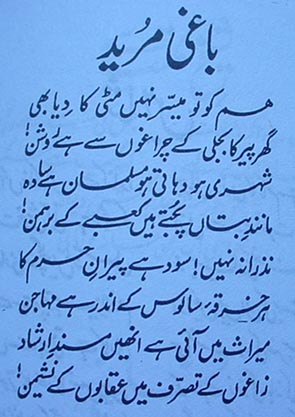 باغی مُرید
ہم کو تو میسّر نہیں مٹی کا دِیا بھی
گھر پیر کا بجلی کے چراغوں سے ہے رَوشن!
شہری ہو دہاتی ہو مسلمان ہے سادہ
مانندِ بتاں پُجتے ہیں کعبے کے برہمن!
نذرانہ نہیں! سود ہے پیرانِ حرم کا
ہر خرقۂ سالوس کے اندر ہے مہاجن
میراث میں آئی ہے انھیں مسندِ ارشاد
زاغوں کے تصرّف میں عقابوں کے نشیمن!